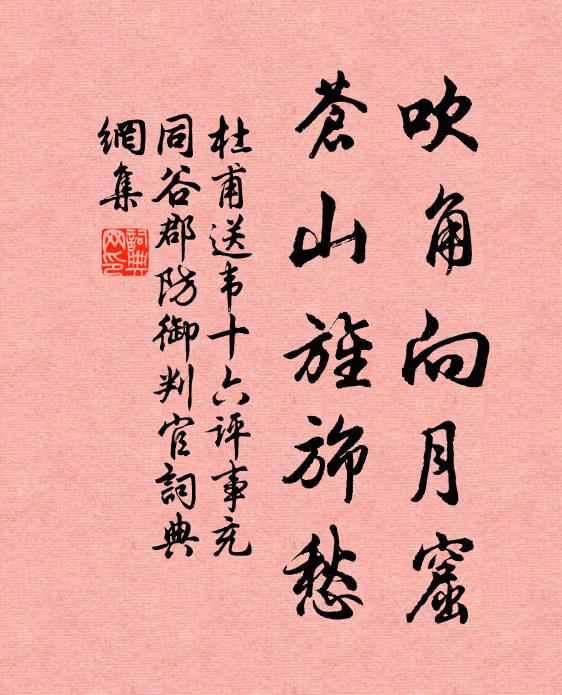 吹角向月窟
蒼山旌旆愁
杜甫送韦十六评事充
同谷郡防御判官詞典
網集
詞典
网印